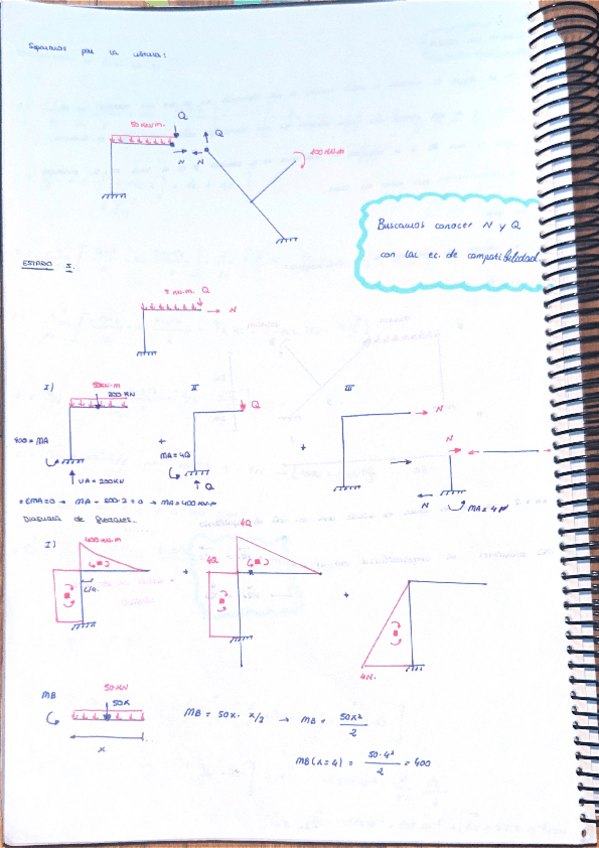 Separamos por la rótula:
50 KN/m.
Q
Q
N
N
100 KN.m
Buscamos conocer N y Q
con las ec. de compatibilidad
ESTADO I.
KN.m Q
N
I)
II
III
50KN.m
200 KN
Q
N
400 = MA
+
MA=4Q
+
N
VA = 200KN
Q
N
MA = 4N
• ΣMA=0 → MA - 200·2 = 0 → MA = 400 KN.m
Diagrama de flectores.
I)
400 KN.m
+
4Q
4Q
+
4N.
MB
50KN
50x
x
MB = 50x · x/2 → MB = 50x²/2
MB(x=4) = 50·4²/2 = 400